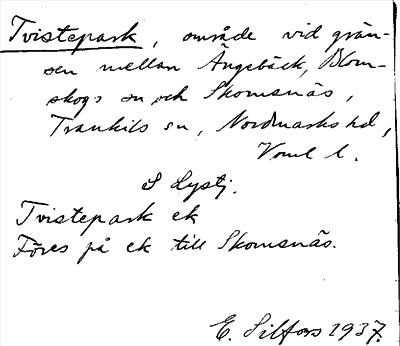 Tvistepark, område vid grän-
sen mellan Ängebäck, Blom-
skogs sn och Skomsnäs,
Trankils sn, Nordmarks hd,
Vrml l.
S Lystj.
Tvistepark ek
Föres på ek till Skomsnäs.
E. Silfors 1937.